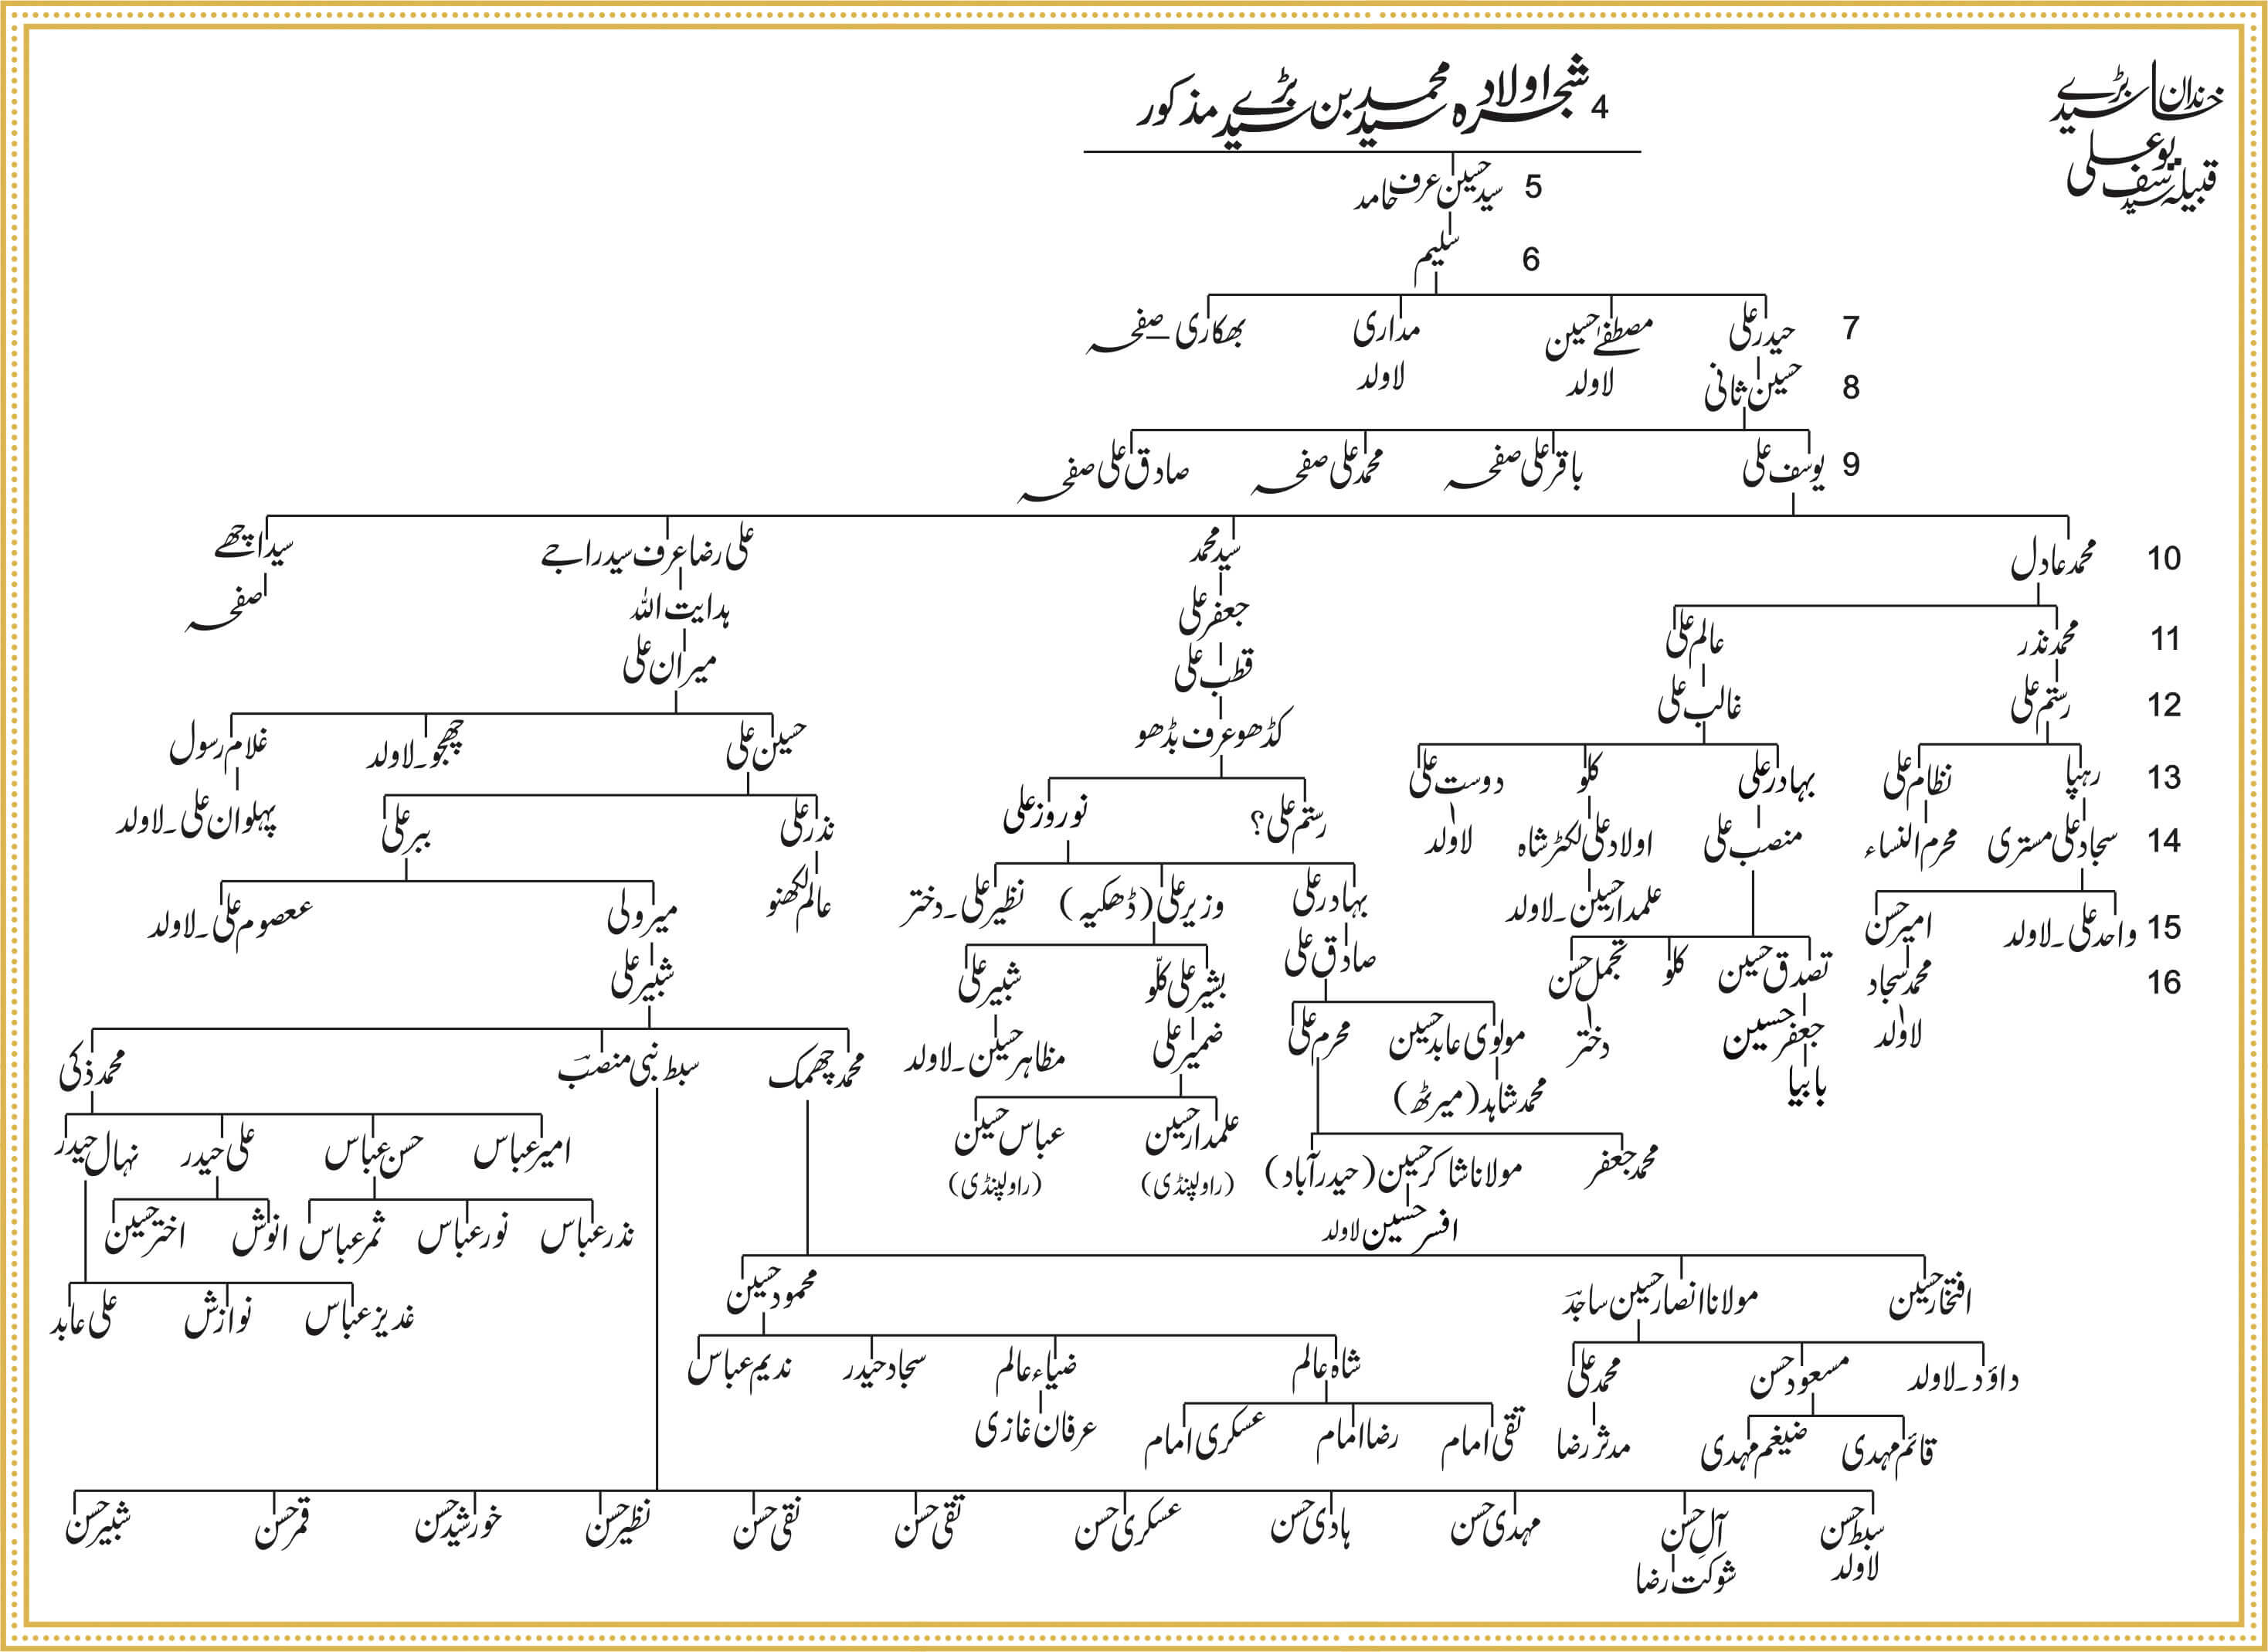 خاندان بڑے سید
قبیلہ سید یوسف علی
4 شجرہ اولاد سید محمد بن بڑے سید مذکور
5 سید حسین عرف حامد
6 سلیم
7 حیدر علی مصطفےٰ حسین مداری بھکاری – صفحہ
8 حسین ثانی لاولد لاولد
9 یوسف علی باقر علی صفحہ محمد علی صفحہ صادق علی صفحہ
10 محمد عادل سید محمد علی رضا عرف سید راجے سید اچھے
11 محمد نذر عالم علی جعفر علی ہدایت اللہ صفحہ
12 رستم علی غالب علی قطب علی میران علی
کڈھو عرف بڈھو حسین علی چھجو۔لاولد غلام رسول
13 رہپا نظام علی بہادر علی کلو دوست علی
رستم علی؟ نوروز علی نذر علی ببر علی پہلوان علی۔لاولد
14 سجاد علی مستری محرم النساء منصب علی اولاد علی لکٹر شاہ لاولد
بہادر علی وزیر علی (ڈھکیہ) نظیر علی۔دختر عالم لکھنو میر ولی معصوم علی۔لاولد
15 واحد علی۔لاولد امیر حسن علمدار حسین۔لاولد
صادق علی
16 محمد سجاد تصدق حسین کلو تجمل حسن بشیر علی کلّو شبیر علی شبیر علی
لاولد جعفر حسین دختر مولوی عابد حسین محرم علی ضمیر علی مظاہر حسین۔لاولد محمد چھمک سبط نبی منصب محمد ذکی
بابیا محمد شاہد (میرٹھ)
محمد جعفر مولانا شاکر حسین (حیدرآباد) علمدار حسین عباس حسین امیر عباس حسن عباس علی حیدر نہال حیدر
(راولپنڈی) (راولپنڈی)
افسر حسین لاولد نذر عباس نور عباس ثمر عباس انوش اختر حسین
افتخار حسین مولانا انصار حسین ساجد محمود حسین غدیر عباس نوازش علی عابد
داؤد۔لاولد مسعود حسن محمد علی شاہ عالم ضیاء عالم سجاد حیدر ندیم عباس
قائم مہدی ضیغم مہدی مدثر رضا تقی امام رضا امام عسکری امام عرفان غازی
سبط حسن آل حسن مہدی حسن ہادی حسن عسکری حسن تقی حسن نقی حسن نظیر حسن خورشید حسن قمر حسن شبیر حسن
لاولد شوکت رضا